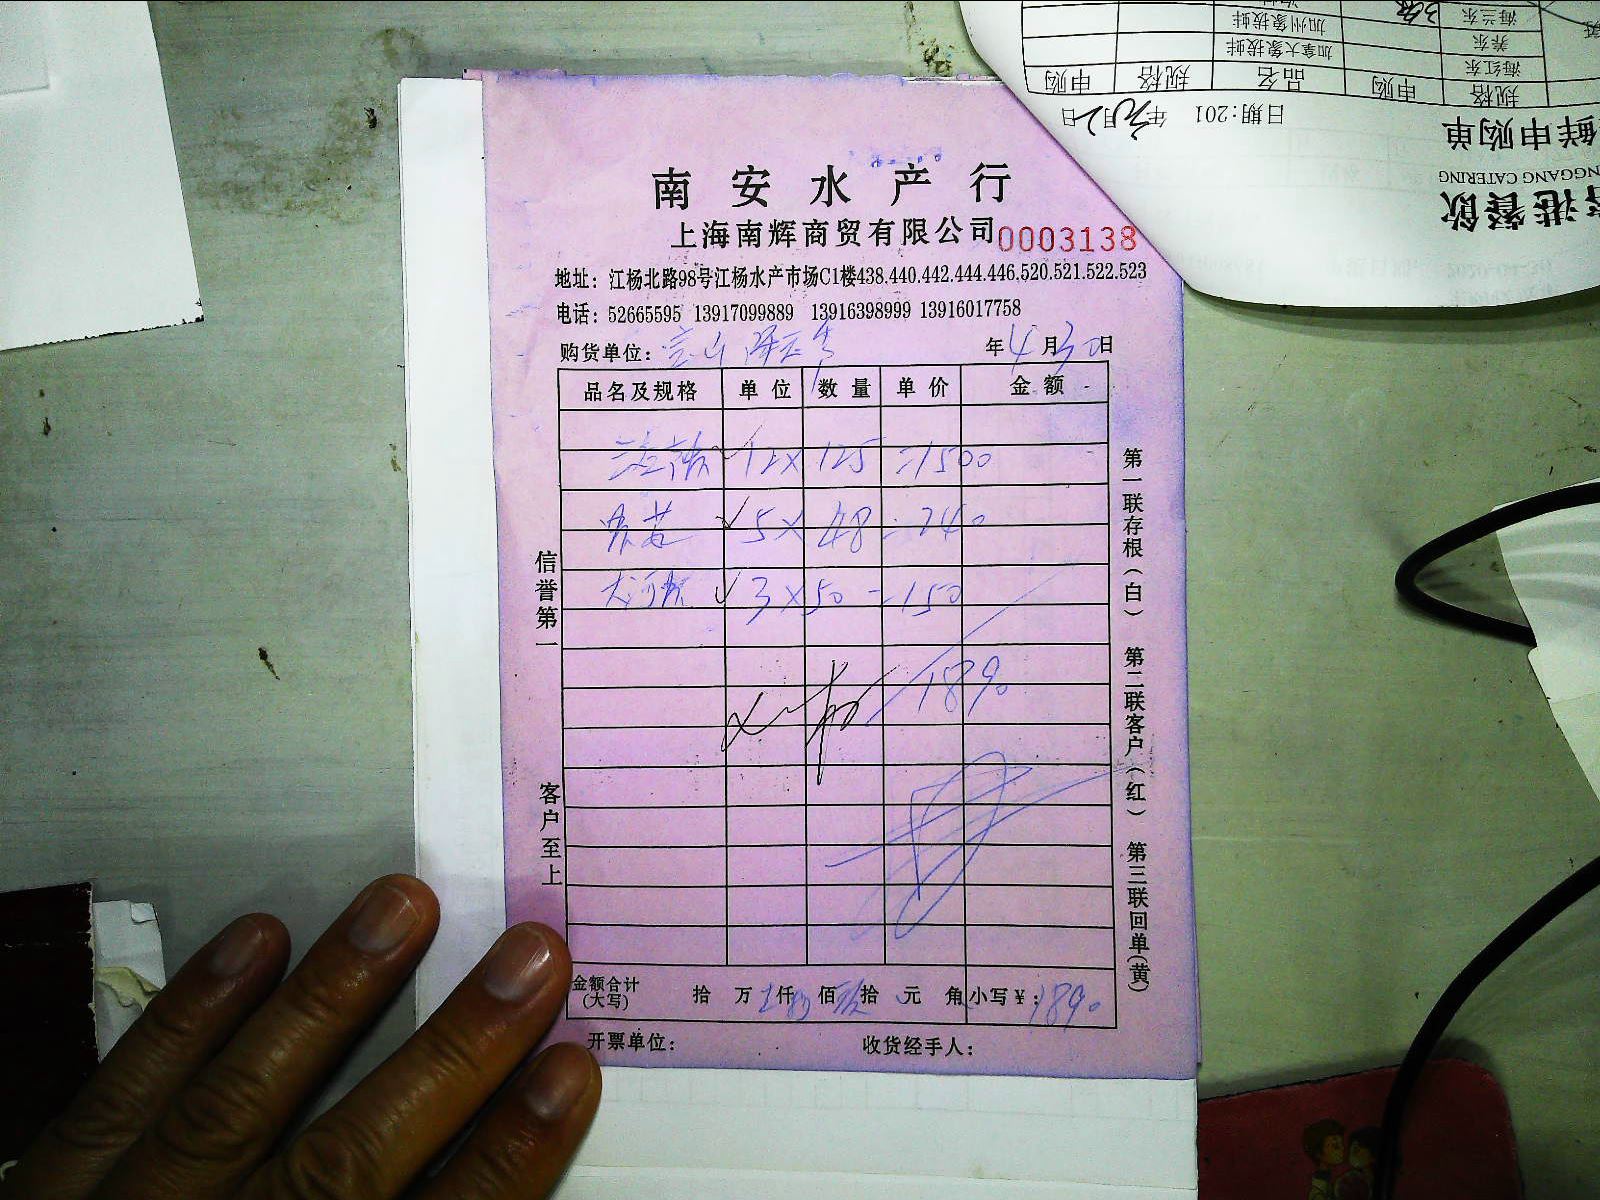 南安水产行
上海南辉商贸有限公司 0003138
地址：江杨北路98号江杨水产市场C1楼438.440.442.444.446.520.521.522.523
电话：52665595 13917099889 13916398999 13916017758
购货单位：宝山 年4月30日
品名及规格 单位 数量 单价 金额
12×125=1500
5×48=240
3×50=150
1890
金额合计(大写) 拾 万 仟 佰 拾 元 角 小写￥：1890
开票单位： 收货经手人：
信誉第一
客户至上
第一联存根(白) 第二联客户(红) 第三联回单(黄)
鲜申购单
NGGANG CATERING
港餐飲
日期：201 年 月 日
规格 申购 品名 规格 申购
海红东 加拿大象拔蚌
养东 加州象拔蚌
海兰东